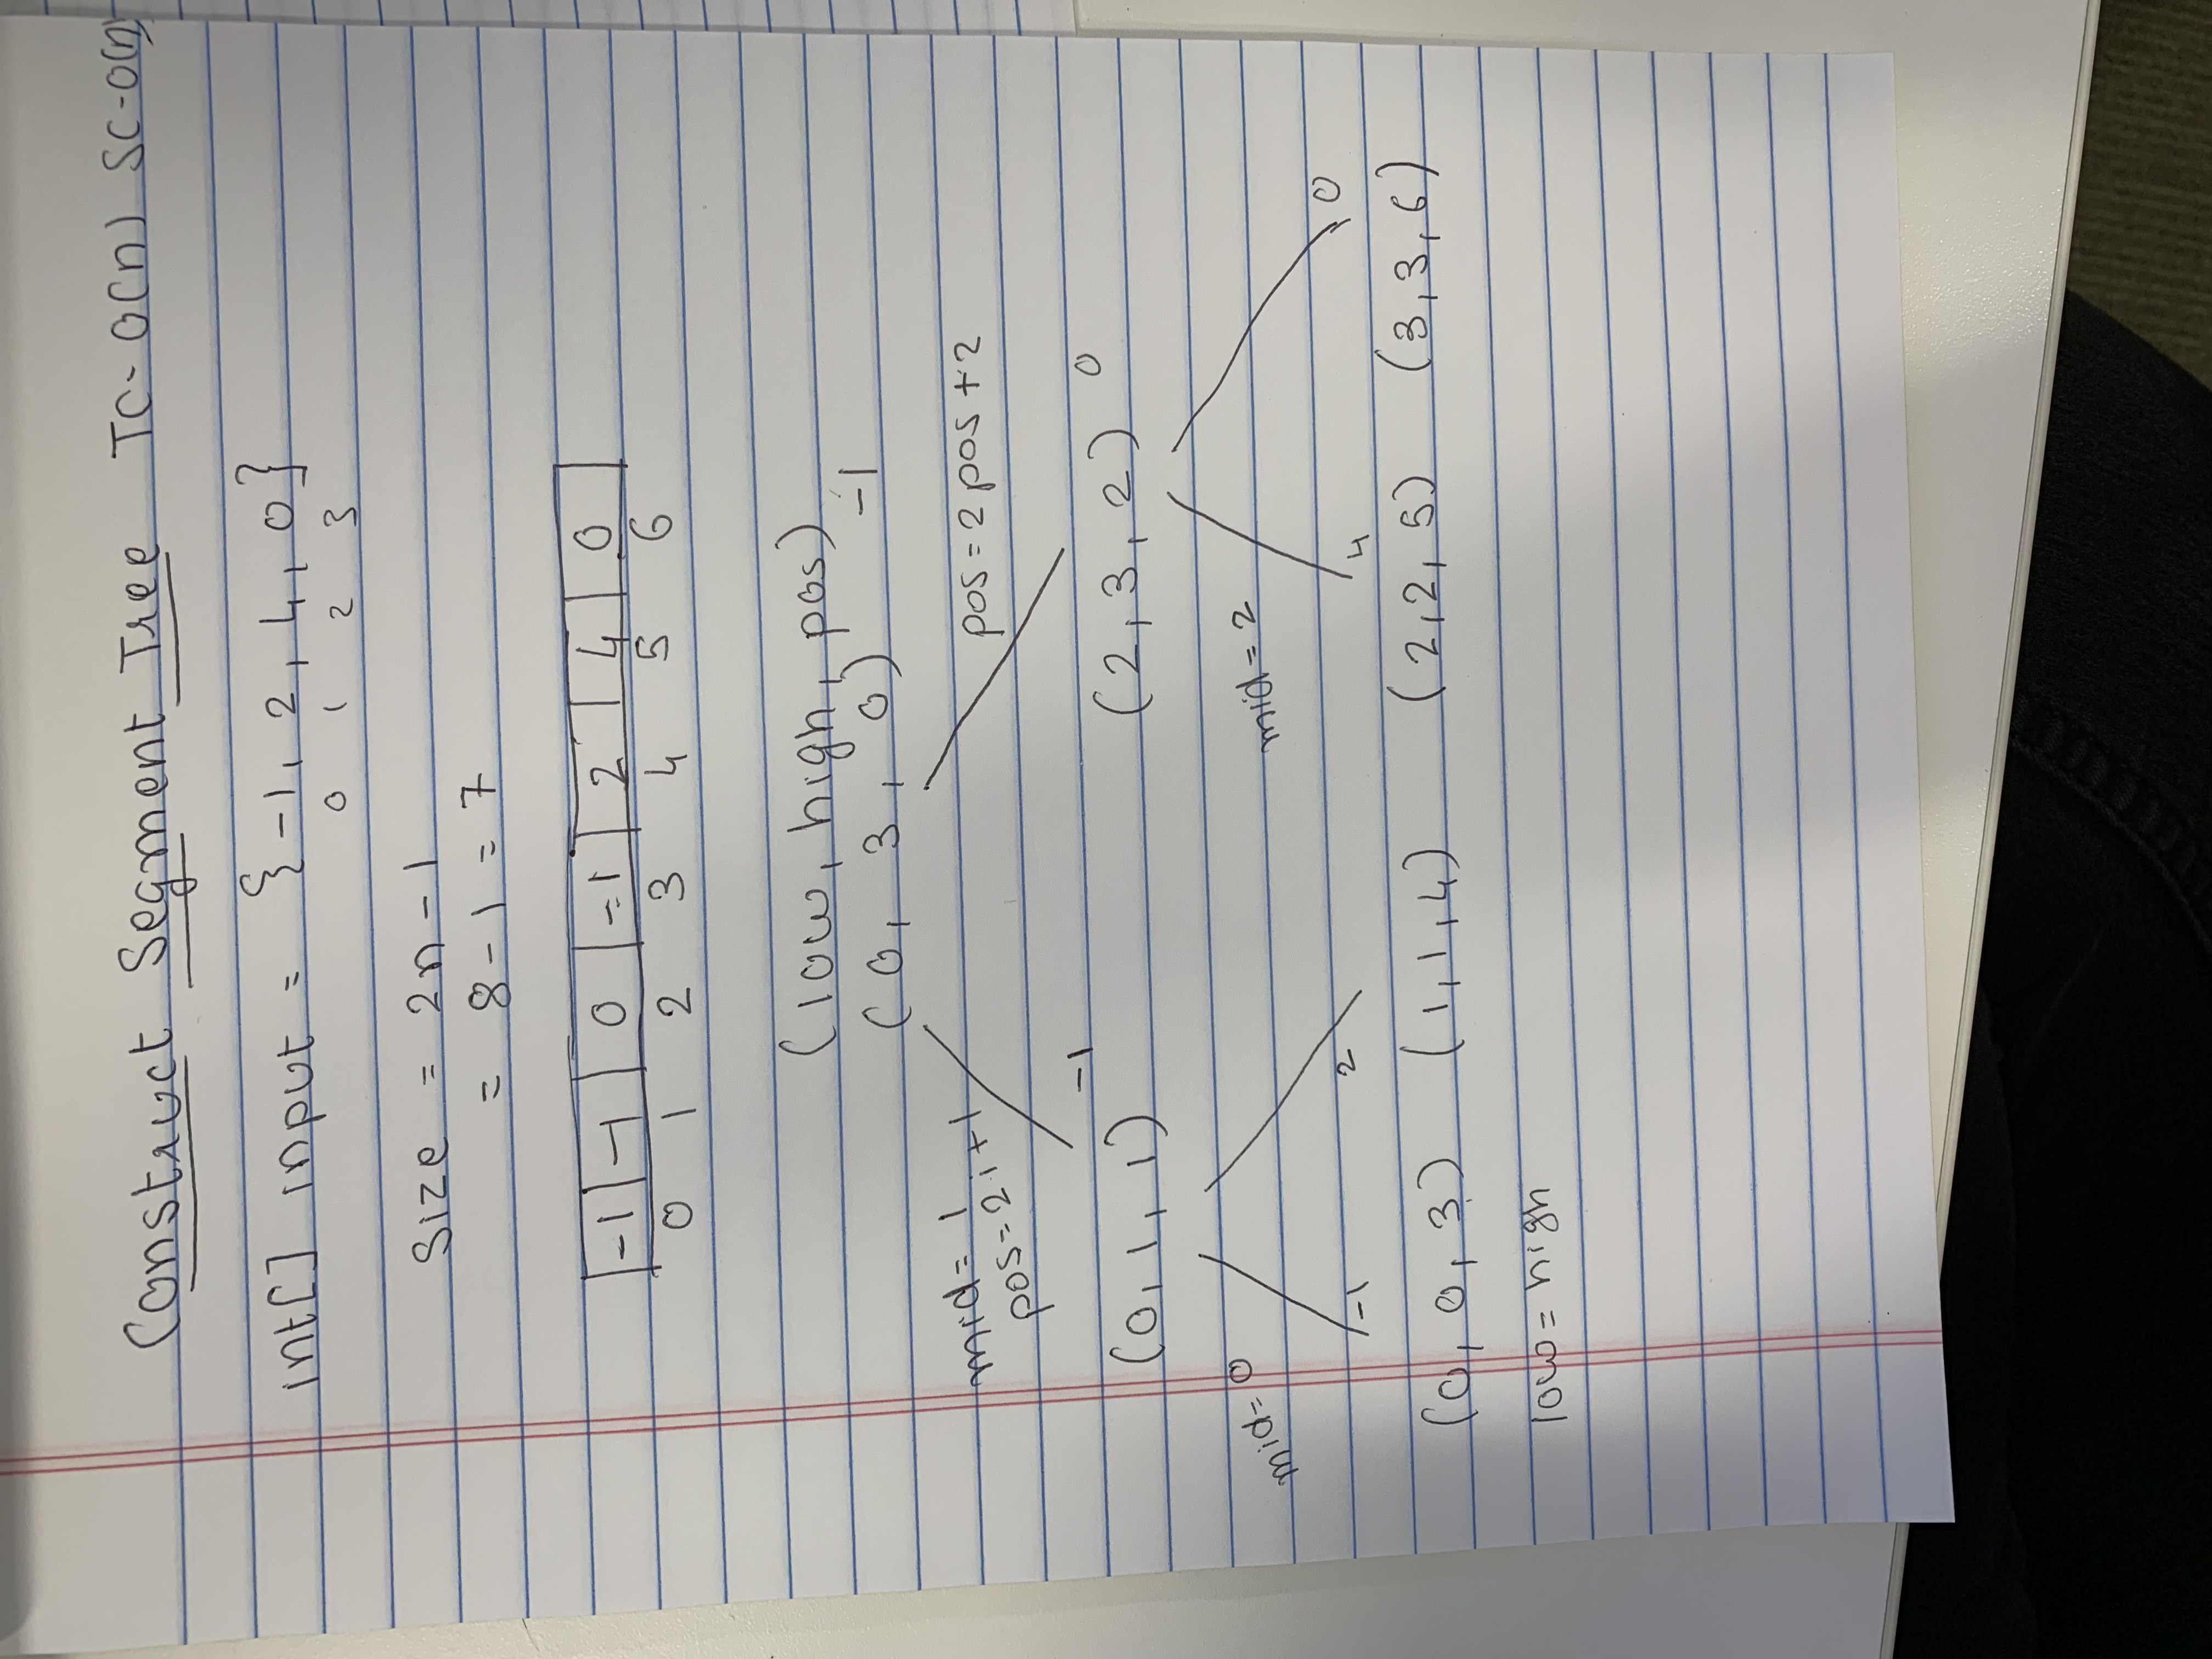 Construct Segment Tree TC- O(n) SC-O(n)
int[] input = {-1, 2, 4, 0}
0 1 2 3
Size = 2n - 1
= 8 - 1 = 7
-1 -1 0 -1 2 4 0
0 1 2 3 4 5 6
(low, high, pos)
(0, 3, 0) -1
mid = 1
pos = 2i+1 pos = 2pos+2
-1 0
(0, 1, 1) (2, 3, 2)
mid = 0 mid = 2
-1 2 4 0
(0, 0, 3) (1,1,4) (2,2,5) (3,3,6)
low = high